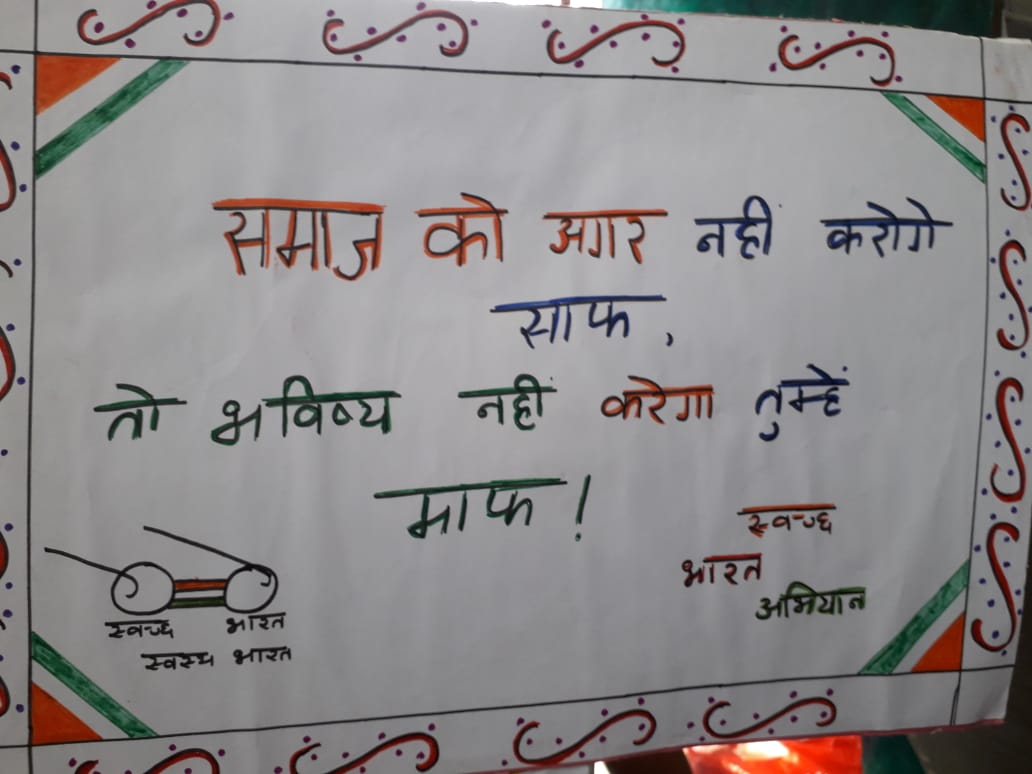 समाज को अगर नही करोगे
साफ,
तो भविष्य नहीं करेगा तुम्हें
माफ!
स्वच्छ
भारत
अभियान
स्वच्छ भारत
स्वस्थ भारत